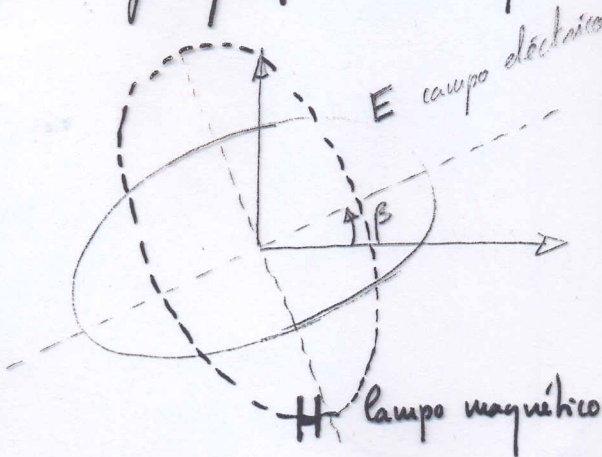 E campo eléctrico
β
H campo magnético